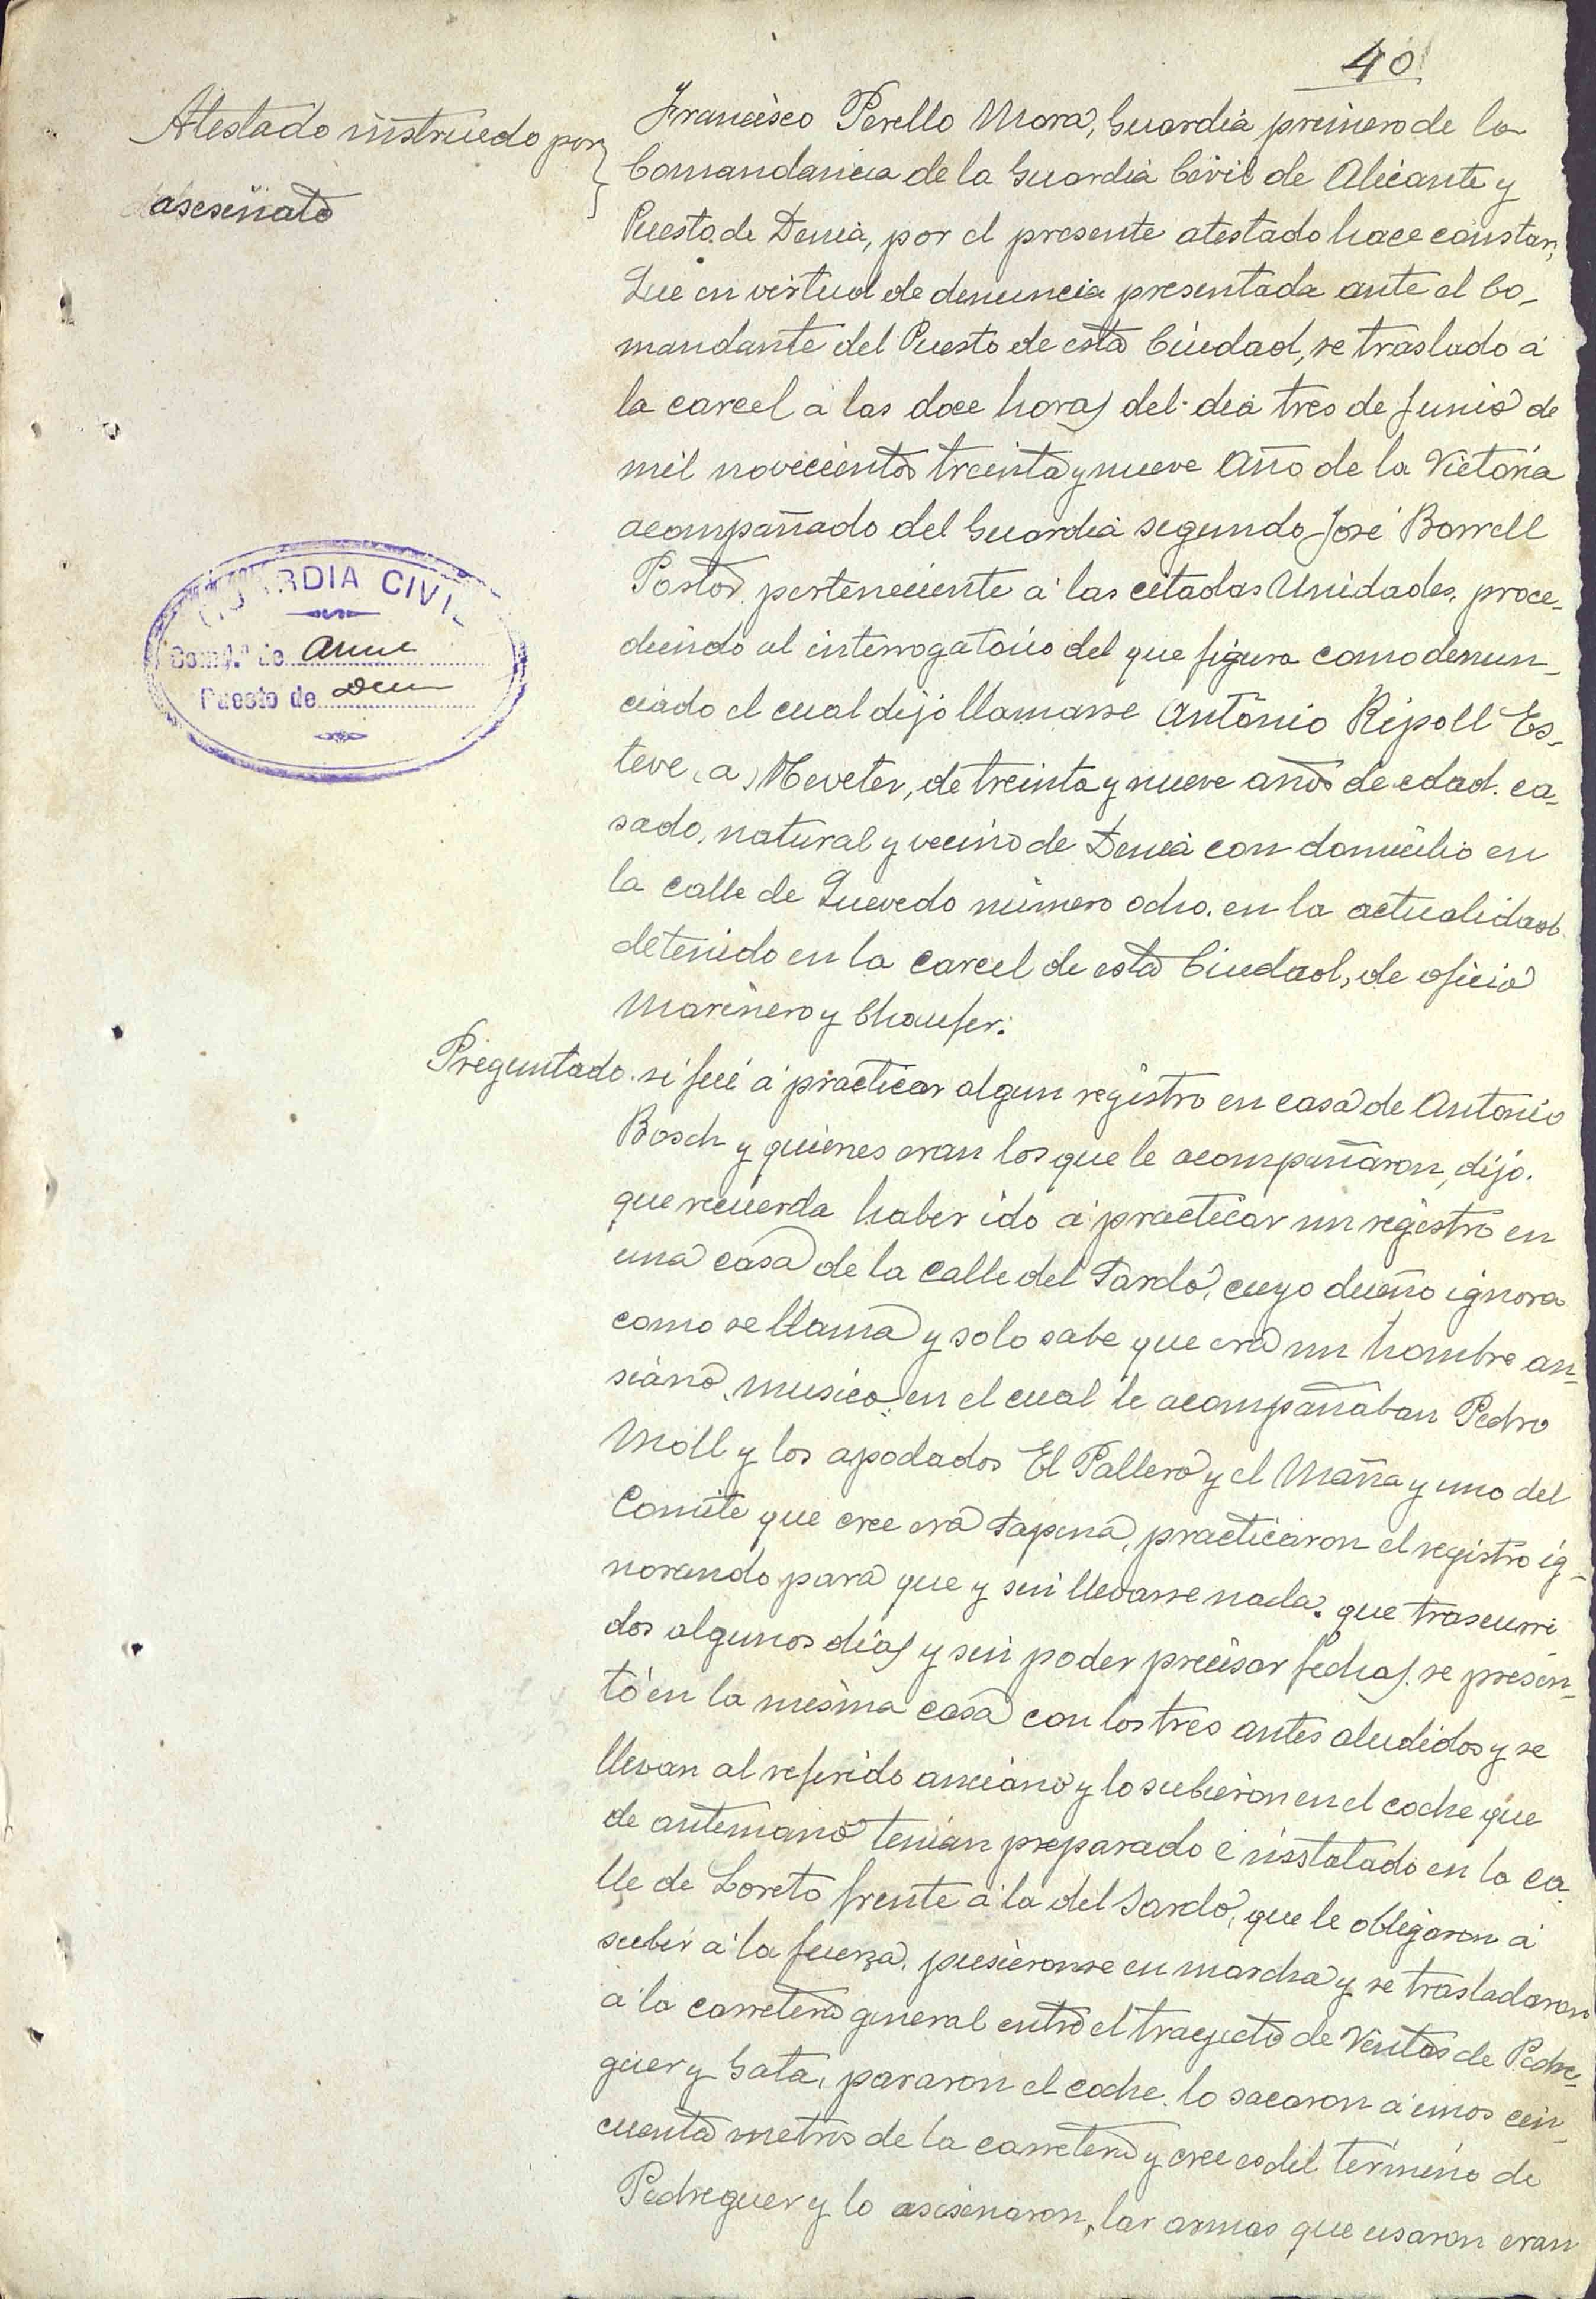 40
Atestado instruido por
asesinato
Francisco Perello Mora, Guardia primero de la
Comandancia de la Guardia Civil de Alicante y
Puesto de Denia, por el presente atestado hace constar,
Que en virtud de denuncia presentada ante el Co-
mandante del Puesto de esta Ciudad, se traslado á
la carcel á las doce horas del dia tres de Junio de
mil novecientos treinta y nueve Año de la Victoria
acompañado del Guardia segundo José Borrell
Pastor perteneciente á las citadas Unidades, proce-
diendo al interrogatorio del que figura como denun-
ciado el cual dijo llamarse Antonio Ripoll Es-
teve (a) Meveter, de treinta y nueve años de edad. ca-
sado, natural y vecino de Denia con domicilio en
la calle de Quevedo número ocho. en la actualidad
detenido en la carcel de esta Ciudad, de oficio
Marinero y Chaufer.
GUARDIA CIVIL
Comd.ª de
Puesto de
Preguntado. si fué á practicar algun registro en casa de Antonio
Bosch y quienes eran los que le acompañaron, dijo.
que recuerda haber ido á practicar un registro en
una casa de la calle del Sardo, cuyo dueño ignora
como se llama y solo sabe que era un hombre an-
siano, musico en el cual le acompañaban Pedro
Moll y los apodados El Pallero y el Maña y uno del
Comite que cree era Sapena, practicaron el registro ig-
norando para que y sin llevarse nada. que trascurri
dos algunos dias y sin poder precisar fechas. se presen-
tó en la mesima casa con los tres antes aludidos y se
llevan al referido anciano y lo subieron en el coche que
de antemano tenian preparado é instalado en la ca-
lle de Loreto frente á la del Sardo, que le obligaron á
subir á la fuerza. pusieronse en marcha y se trasladaron
á la carretera general entre el trayecto de Ventas de Pedre-
guer y Gata, pararon el coche. lo sacaron á unos cin-
cuenta metros de la carretera y cree es del término de
Pedreguer y lo asesinaron, las armas que usaron eran